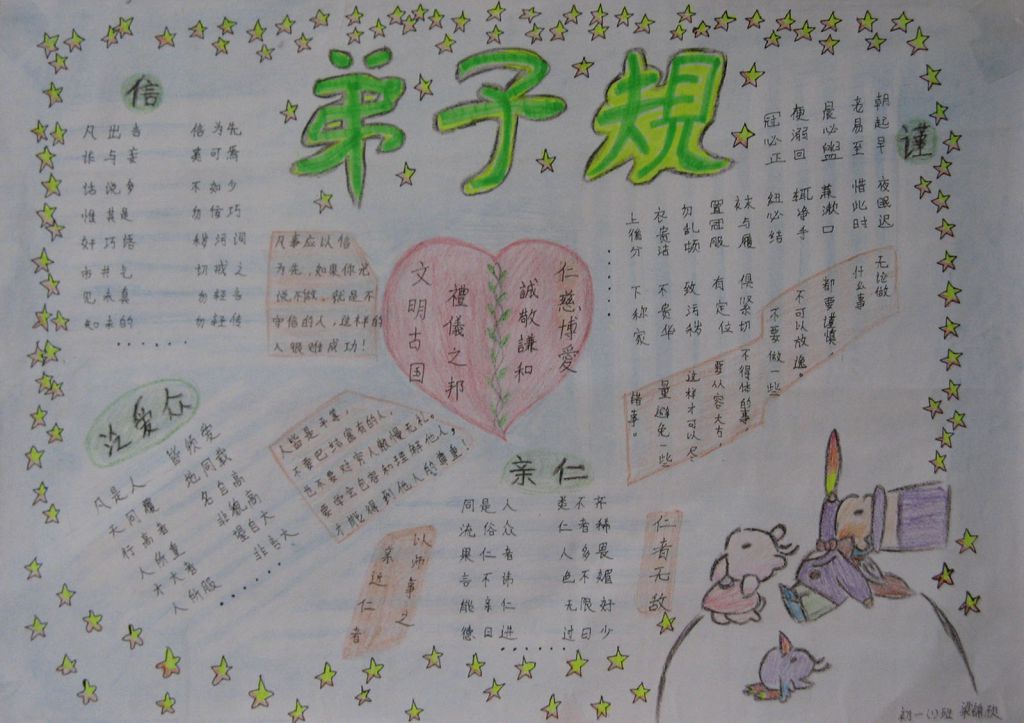 弟子規
信
凡出言 信为先
诈与妄 奚可焉
话说多 不如少
惟其是 勿佞巧
奸巧语 秽污词
市井气 切戒之
见未真 勿轻言
知未的 勿轻传
······
凡事应以信
为先,如果你光
说不做,就是不
守信的人,这样的
人很难成功!
谨
朝起早 夜眠迟
老易至 惜此时
晨必盥 兼漱口
便溺回 辄净手
冠必正 纽必结
袜与履 俱紧切
置冠服 有定位
勿乱顿 致污秽
衣贵洁 不贵华
上循分 下称家
······
无论做
什么事
都要谨慎,
不可以放逸。
不要做一些
不得体的事
要从容大方,
这样才可以尽
量避免一些
错事。
仁慈博愛
誠敬謙和
禮儀之邦
文明古国
泛爱众
凡是人 皆须爱
天同覆 地同载
行高者 名自高
人所重 非貌高
才大者 望自大
人所服 非言大
······
人皆是平等,
不要巴结富有的人,
也不要对穷人傲慢无礼。
要学会包容和理解他人,
才能得到他人的尊重!
亲仁
同是人 类不齐
流俗众 仁者稀
果仁者 人多畏
言不讳 色不媚
能亲仁 无限好
德日进 过日少
······
以师事之
亲近仁者
仁者无敌
初一(1)班